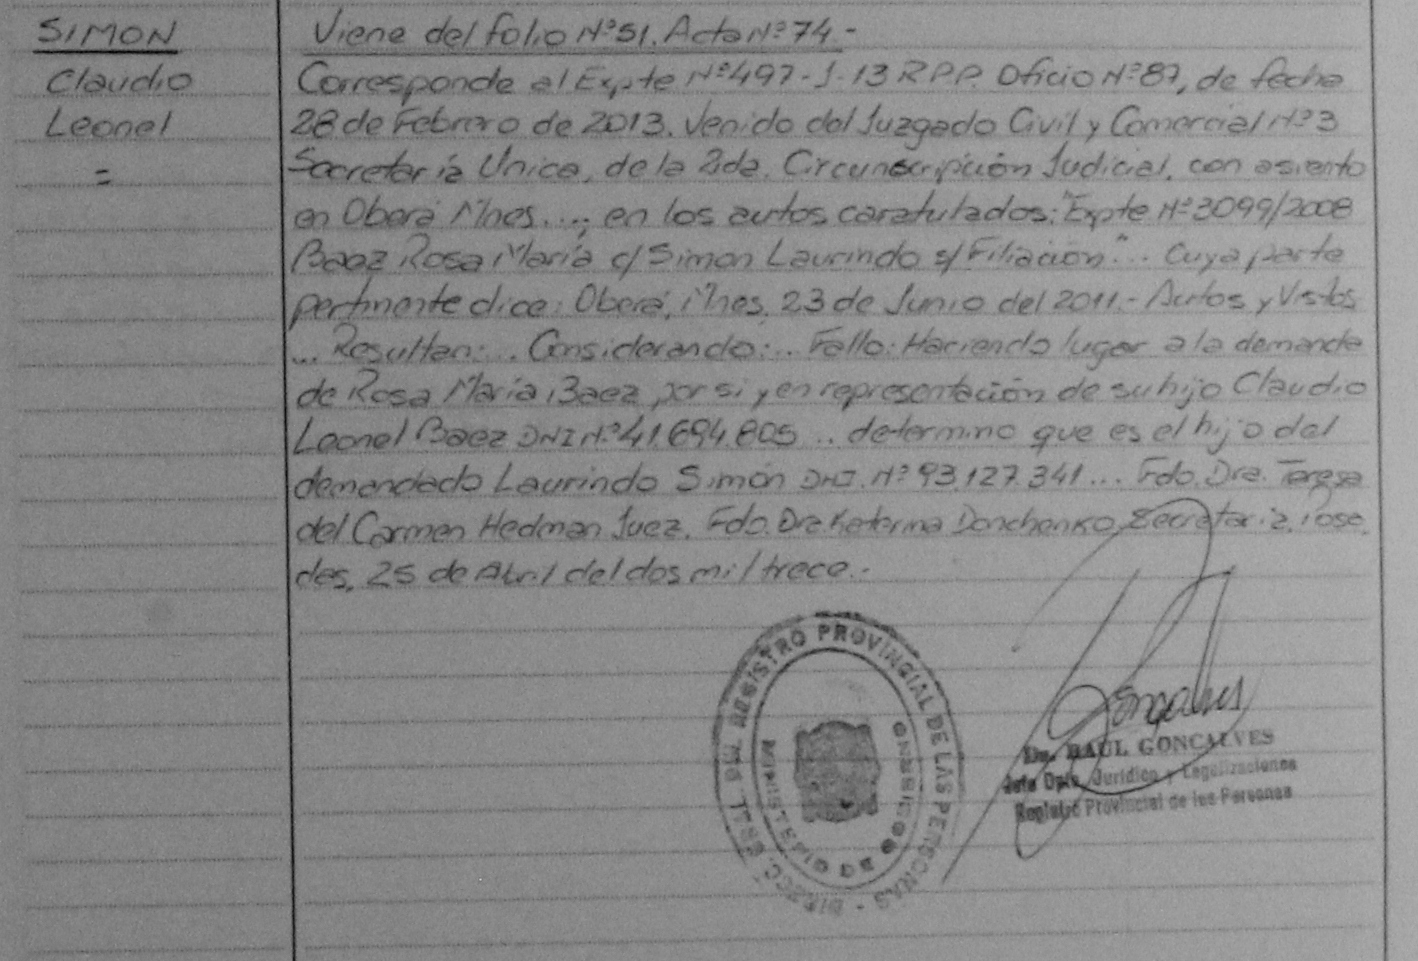 SIMON
Claudio
Leonel
=
Viene del folio Nº 51. Acta Nº 74.-
Corresponde al Expte Nº 497-J-13 R.P.P. Oficio Nº 87, de fecha
28 de Febrero de 2013. Venido del Juzgado Civil y Comercial Nº 3
Secretaría Unica, de la 2da. Circunscripción Judicial, con asiento
en Oberá Mnes...; en los autos caratulados: "Expte Nº 3099/2008
Baez Rosa María c/ Simon Laurindo s/ Filiación"... Cuya parte
pertinente dice: Oberá, Mnes, 23 de Junio del 2011.- Autos y Vistos
... Resultan:... Considerando:... Fallo: Haciendo lugar a la demanda
de Rosa María Baez por si y en representación de su hijo Claudio
Leonel Baez DNI Nº 41.694.805... determino que es el hijo del
demandado Laurindo Simón DNI. Nº 93.127.341... Fdo. Dra. Teresa
del Carmen Hedman Juez. Fdo. Dra Keterina Donchenko Secretaria. Posa-
das, 25 de Abril del dos mil trece.-
DIRECC. GRAL. DEL REGISTRO PROVINCIAL DE LAS PERSONAS -
MINISTERIO DE GOBIERNO
Goncalves
Dr. RAUL GONCALVES
Jefe Dpto. Jurídico y Legalizaciones
Registro Provincial de las Personas